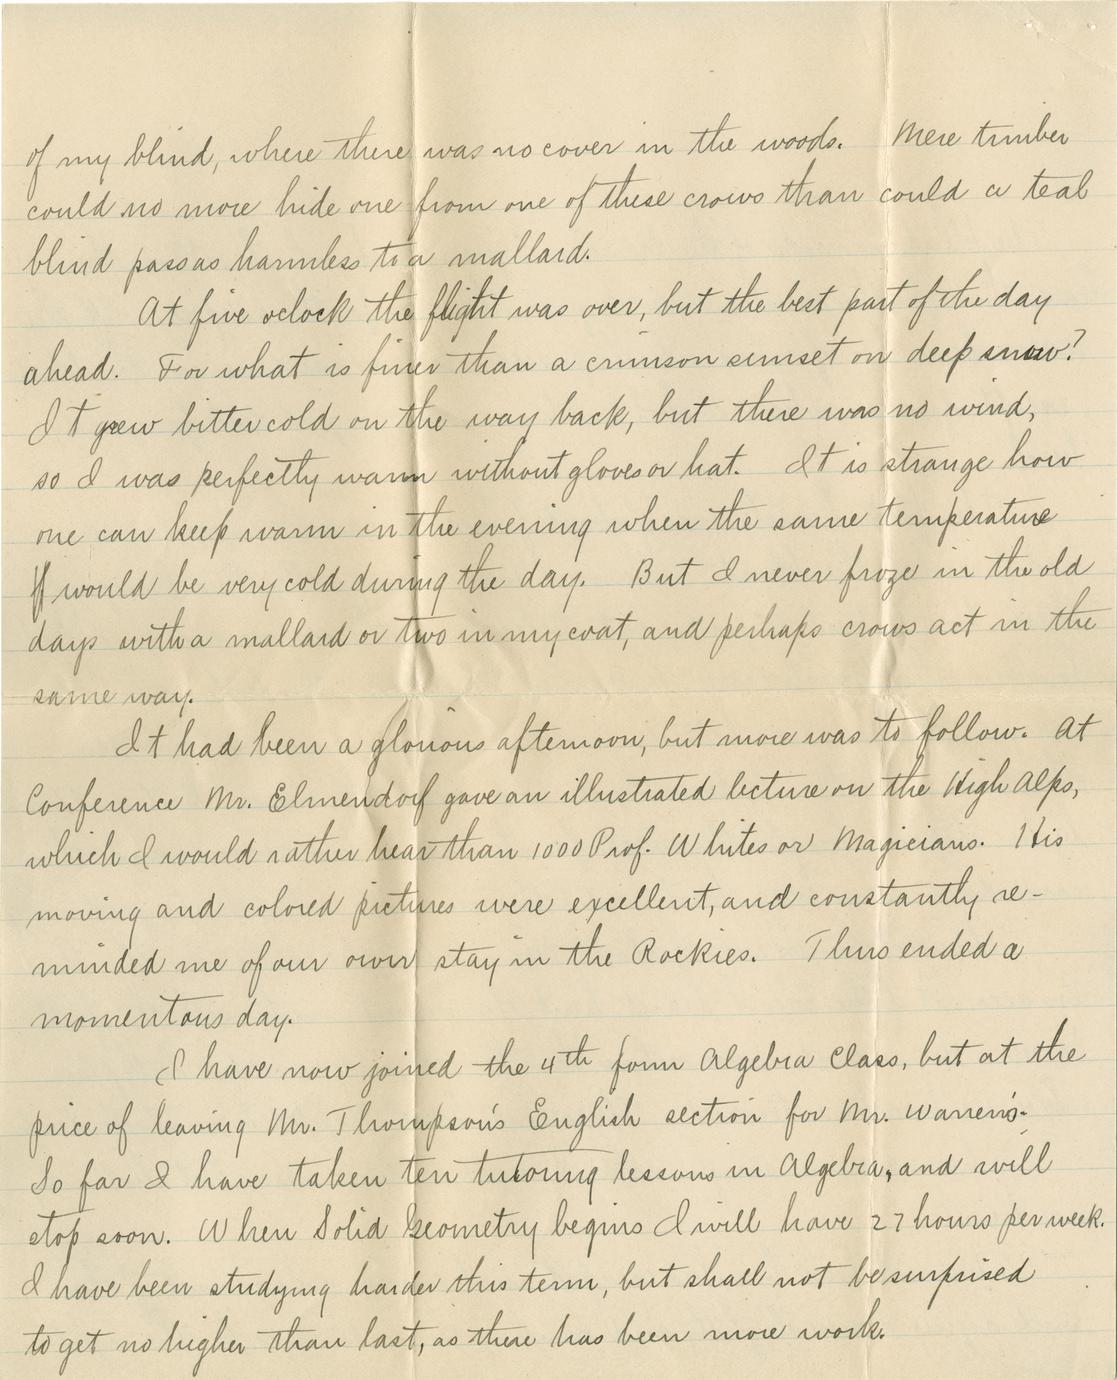 of my blind, where there was no cover in the woods. Mere timber
could no more hide one from one of these crows than could a teal
blind pass as harmless to a mallard.
At five oclock the flight was over, but the best part of the day
ahead. For what is finer than a crimson sunset on deep snow?
It grew bitter cold on the way back, but there was no wind,
so I was perfectly warm without gloves or hat. It is strange how
one can keep warm in the evening when the same temperature
would be very cold during the day. But I never froze in the old
days with a mallard or two in my coat, and perhaps crows act in the
same way.
It had been a glorious afternoon, but more was to follow. At
Conference Mr. Elmendorf gave an illustrated lecture on the High Alps,
which I would rather hear than 1000 Prof. Whites or Magicians. His
moving and colored pictures were excellent, and constantly re-
minded me of our own stay in the Rockies. Thus ended a
momentous day.
I have now joined the 4th form Algebra Class, but at the
price of leaving Mr. Thompson's English section for Mr. Warren's.
So far I have taken ten tutoring lessons in Algebra, and will
stop soon. When Solid Geometry begins I will have 27 hours per week.
I have been studying harder this term, but shall not be surprised
to get no higher than last, as there has been more work.